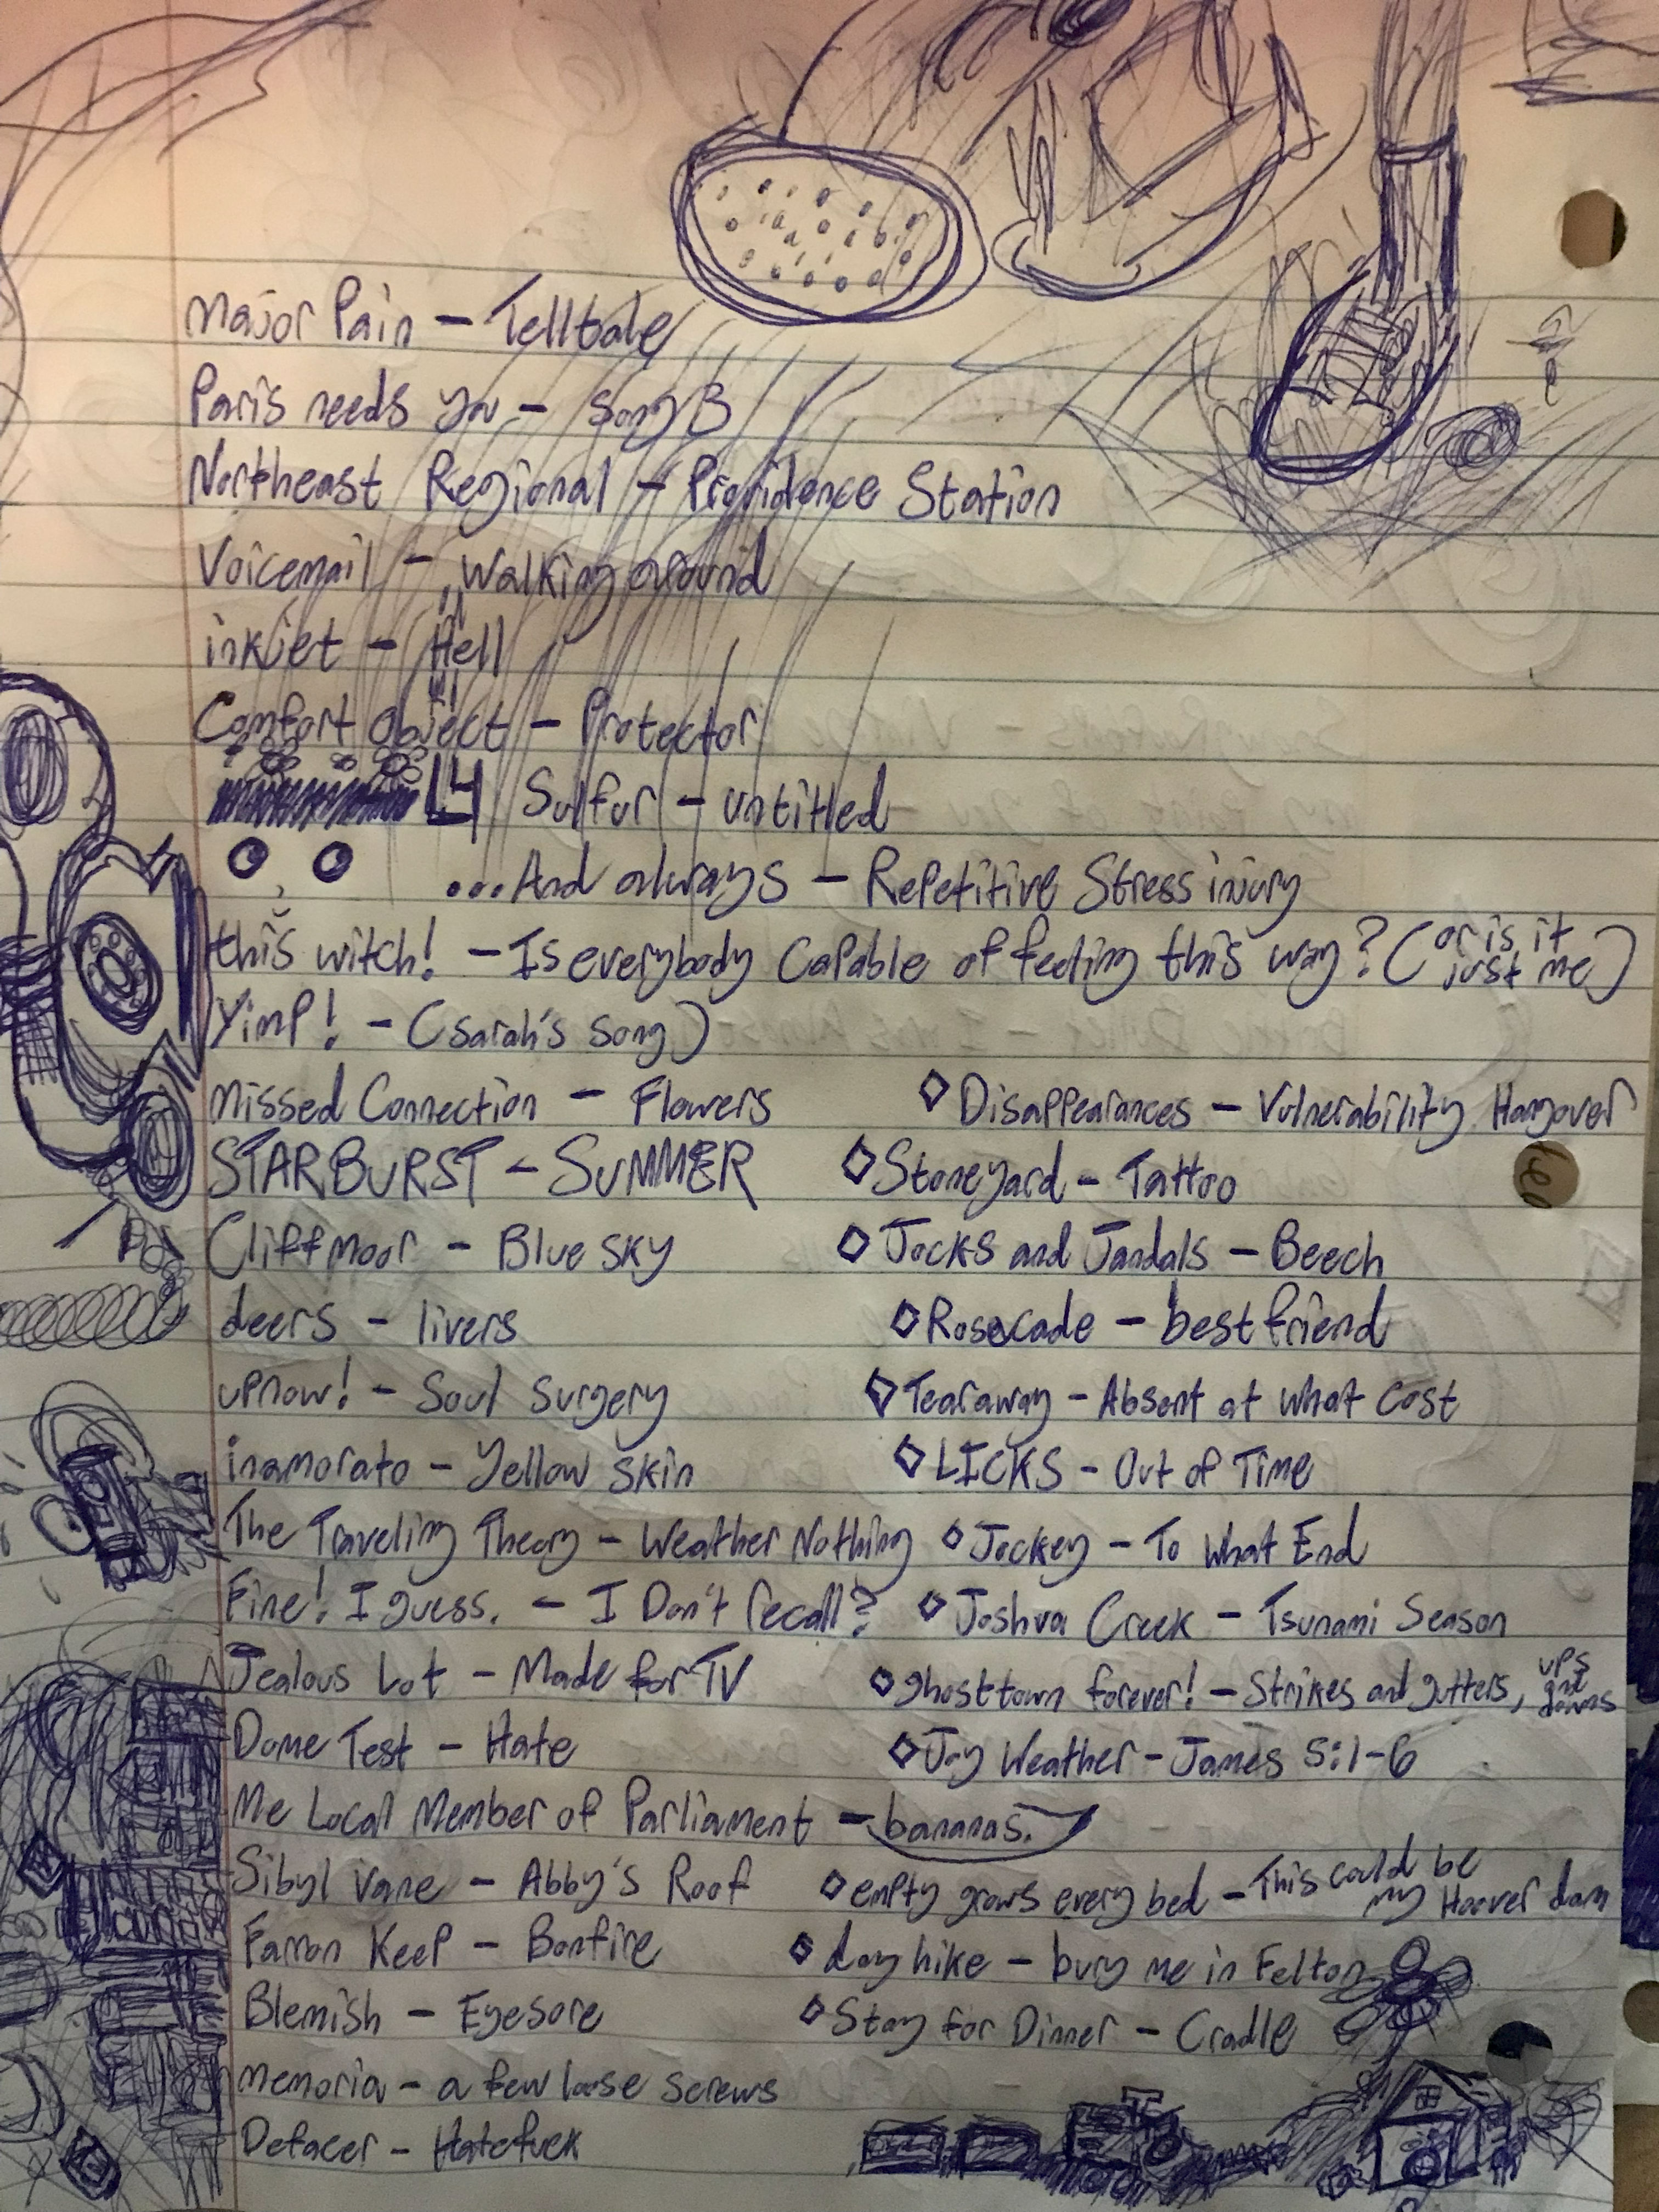 Major Pain – Telltale
Paris needs you – song B
Northeast Regional – Providence Station
Voicemail – Walking around
inkjet – Hell
Comfort object – Protector
Sulfur – untitled
...And always – Repetitive Stress injury
this witch! – Is everybody Capable of feeling this way? (or is it just me)
Yimp! – (Sarah's Song)
Missed Connection – Flowers ◇ Disappearances – Vulnerability Hangover
STARBURST – SUMMER ◇ Stoneyard – Tattoo
Cliffmoor – Blue sky ◇ Jocks and Jandals – Beech
deers – livers ◇ Rosecade – best friend
upnow! – Soul Surgery ◇ Tearaway – Absent at what cost
inamorato – Yellow Skin ◇ LICKS – Out of Time
The Traveling Theory – Weather Nothing ◇ Jockey – To What End
Fine! I guess. – I Don't recall? ◇ Joshua Creek – Tsunami Season
Jealous Lot – Made for TV ◇ ghost town forever! – Strikes and gutters, ups and downs
Dome Test – Hate ◇ Jay Weather – James 5:1-6
Me Local Member of Parliament – bananas.
Sibyl Vane – Abby's Roof ◇ empty grows every bed – This could be my Hoover dam
Farron Keep – Bonfire ◇ day hike – bury me in Felton
Blemish – Eyesore ◇ Stay for Dinner – Cradle
Memoria – a few loose screws
Defacer – Hatefuck